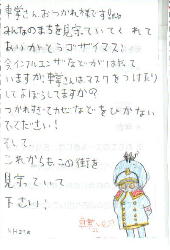 車掌さんおつかれ様です!!
みんなのまちを見守っていてくれて
ありがとうゴザイマス!
今インフルエンザなどがはやって
いますが、車掌さんはマスクをつけたり
してよぼうしてますかの
つかれすぎてカゼなどをひかない
でください!
そして、
これからも、この街を
見守っていて
下さい!